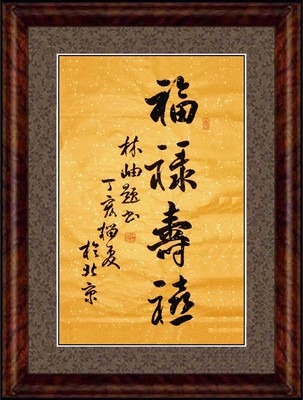 福禄壽禧
林岫题书
丁亥榴夏
於北京